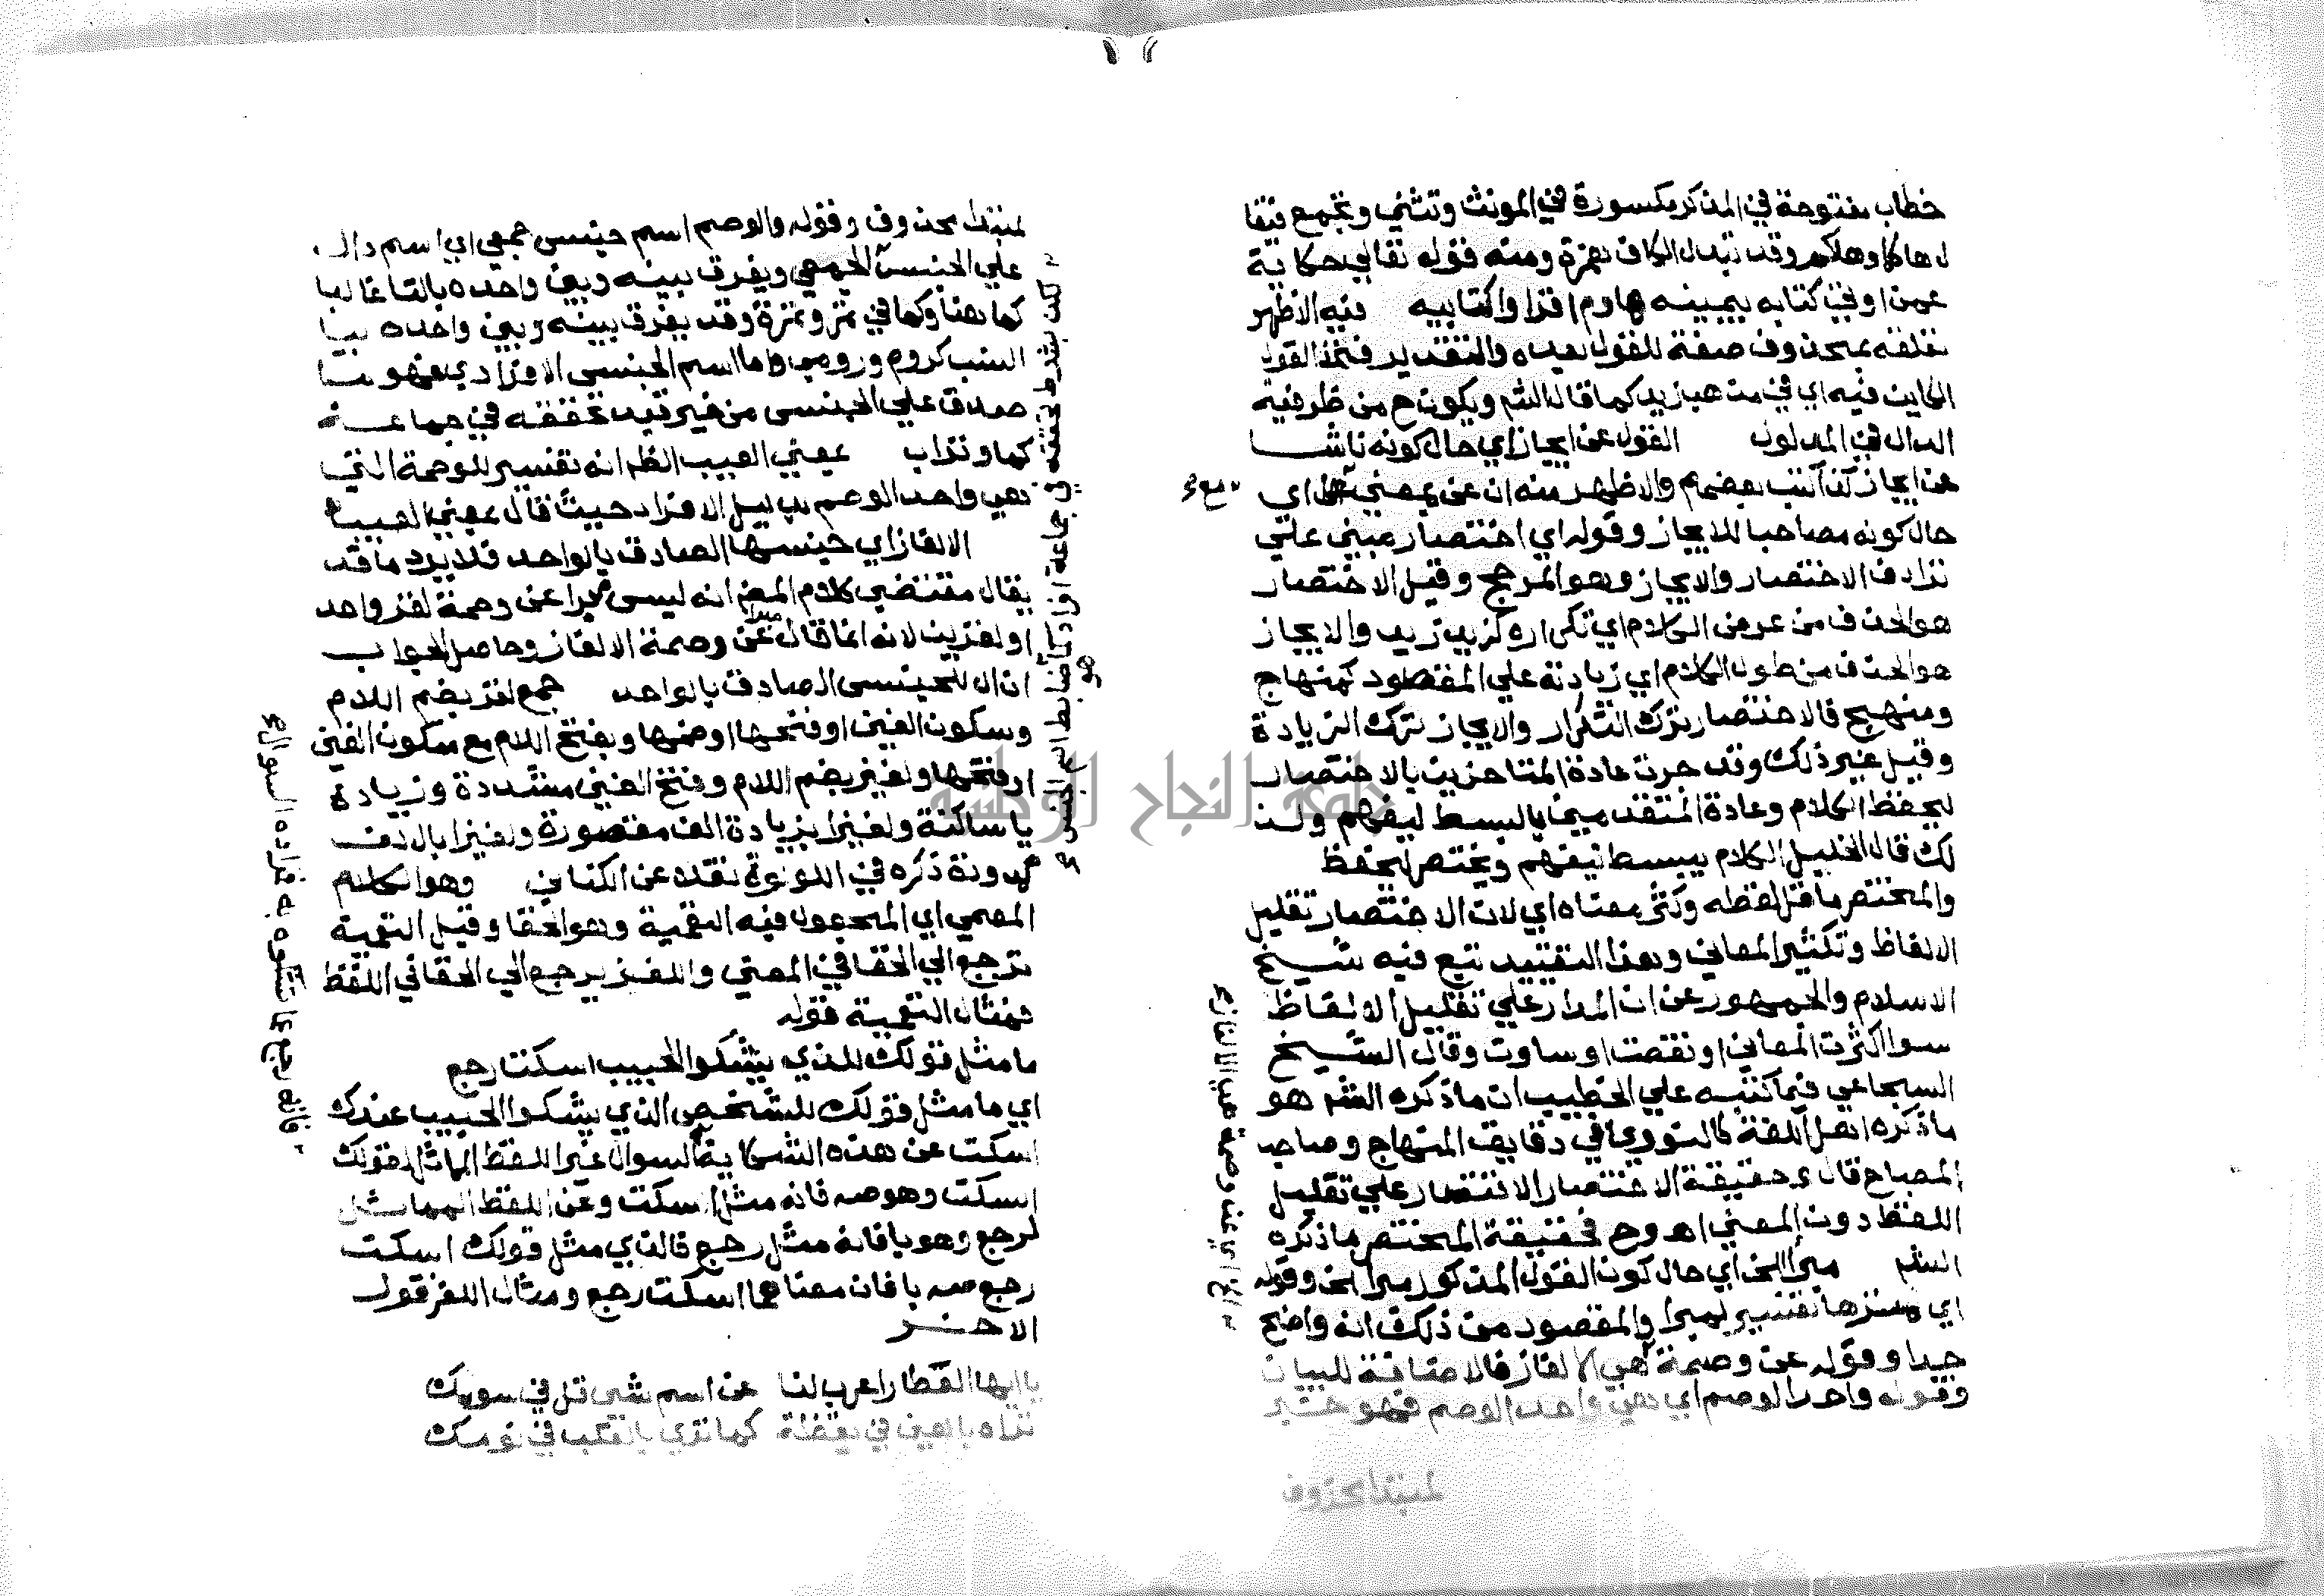 خطاب مفتوحة في المذكر مكسورة في المونث وتثني وتجمع فيقا
ل هاكما وهاكم وقد تبدل الكاف بهمزة ومنه قوله تعالي حكاية
عمن اوتي كتابه بيمينه هاوم اقرا واكتابيه فيه الاظهر
تعلقه بمحذوف صفة للقول بعده والتقدير فخذ القول
الكاين فيه اي في مذهب زيد كما قال الشم ويكون ح من ظرفية
الدال في المدلول القول عن ايجاز اي حال كونه ناشـــا
عن ايجاز كذا كتب بعضهم والاظهر منه ان عن بمعني اي
حال كونه مصاحبا للايجاز وقوله اي اختصار مبني علي
ترادف الاختصار والايجاز وهو المرجح وقيل الاختصار
هو الحذف من عرض الكلام اي تكراره كزيد زيد والايجاز
هو الحذف من طول الكلام اي زيادته علي المقصود كمنهاج
ومنهج فالاختصار بترك التكرار والايجاز بترك الزيادة
وقيل غير ذلك وقد جرت عادة المتاخرين بالاختصار
ليحفظ الكلام وعادة المتقدمين بالبسط ليفهم ولذ
لك قال الخليل الكلام يبسط ليفهم ويختصر ليحفظ
والمختصر ما قل لفظه وكثر معناه اي لان الاختصار تقليل
الالفاظ وتكثير المعاني وهذا التقييد تبع فيه شيخ
الاسلام والجمهور عن ان المدار علي تقليل الالفاظ
سوا كثرت المعاني او نقصت او ساوت وقال الشيخ
السجاعي فيما كتبه علي الخطيب ان ما ذكره الشم هو
ما ذكره اهل اللغة كالنووي في دقايق المنهاج وصاحب
المصباح قال حقيقة الاختصار الاقتصار علي تقليل
اللفظ دون المعني اهـ وح فحقيقة المختصر ما ذكره
الشم مبرا الخ اي حال كون القول المذكور مبرا الخ وقوله
اي منزها تفسير لمبرا والمقصود من ذلك انه واضح
جدا وقوله عن وصمة هي الالغاز فالاضافة للبيان
وقوله واحد الوصم اي هي واحد الوصم فهو خبر
لمبتدا محذوف
اي عن وصمة هي الالغاز
لمبتدا محذوف وقوله والوصم اسم جنس جمعي اي اسم دال
علي الجنس الجمعي ويفرق بينه وبين واحده بالتا غالبا
كما هنا وكما في تمر وتمرة وقد يفرق بينه وبين واحده بيا
النسب كروم ورومي واما اسم الجنس الافرادي فهو ما
صدق علي الجنس من غير قيد تحققه في جماعة
كما وتراب بمعني العيب الظم انه تفسير للوصمة التي
هي واحد الوصم بدليل الافراد حيث قال بمعني العيب
الالغاز اي جنسها الصادق بالواحد فلا يرد ما قد
يقال مقتضي كلام المص انه ليس مبرا عن وصمة لغز واحد
او لغزين لانه انما قال مبرا عن وصمة الالغاز وحاصل الجواب
ان ال للجنس الصادق بالواحد جمع لغز بضم اللام
وسكون الغين او فتحها او ضمها وبفتح اللام مع سكون الغين
او فتحها ولغيز بضم اللام وفتح الغين مشددة وزيادة
يا ساكنة ولغيزا بزيادة الف مقصورة ولغيزا بالالف
ممدودة ذكره في اللولوة نقله عن الكتاني وهو الكلام
المعمي اي المجعول فيه التعمية وهو الخفا وقيل التعمية
ترجع الي الخفا في المعني واللغز يرجع الي الخفا في اللفظ
فمثال التعمية قوله
ما مثل قولك للذي يشكو الحبيب اسكت رجع
اي ما مثل قولك للشخص الذي يشكو الحبيب عندك
اسكت عن هذه الشكاية السوال عن اللفظ المماثل لقولك
اسكت وهو صه فانه مثل اسكت وعن اللفظ المماثل
لرجع وهو با فانه مثل رجع فالذي مثل قولك اسكت
رجع صه با فان معناهما اسكت رجع ومثال اللغز قول
الاخر
يا ايها العطار اعرب لنا عن اسم شي قل في سومك
تراه بالعين في يقظة كما تري بالقلب في نومك
جامعة النجاح الوطنية